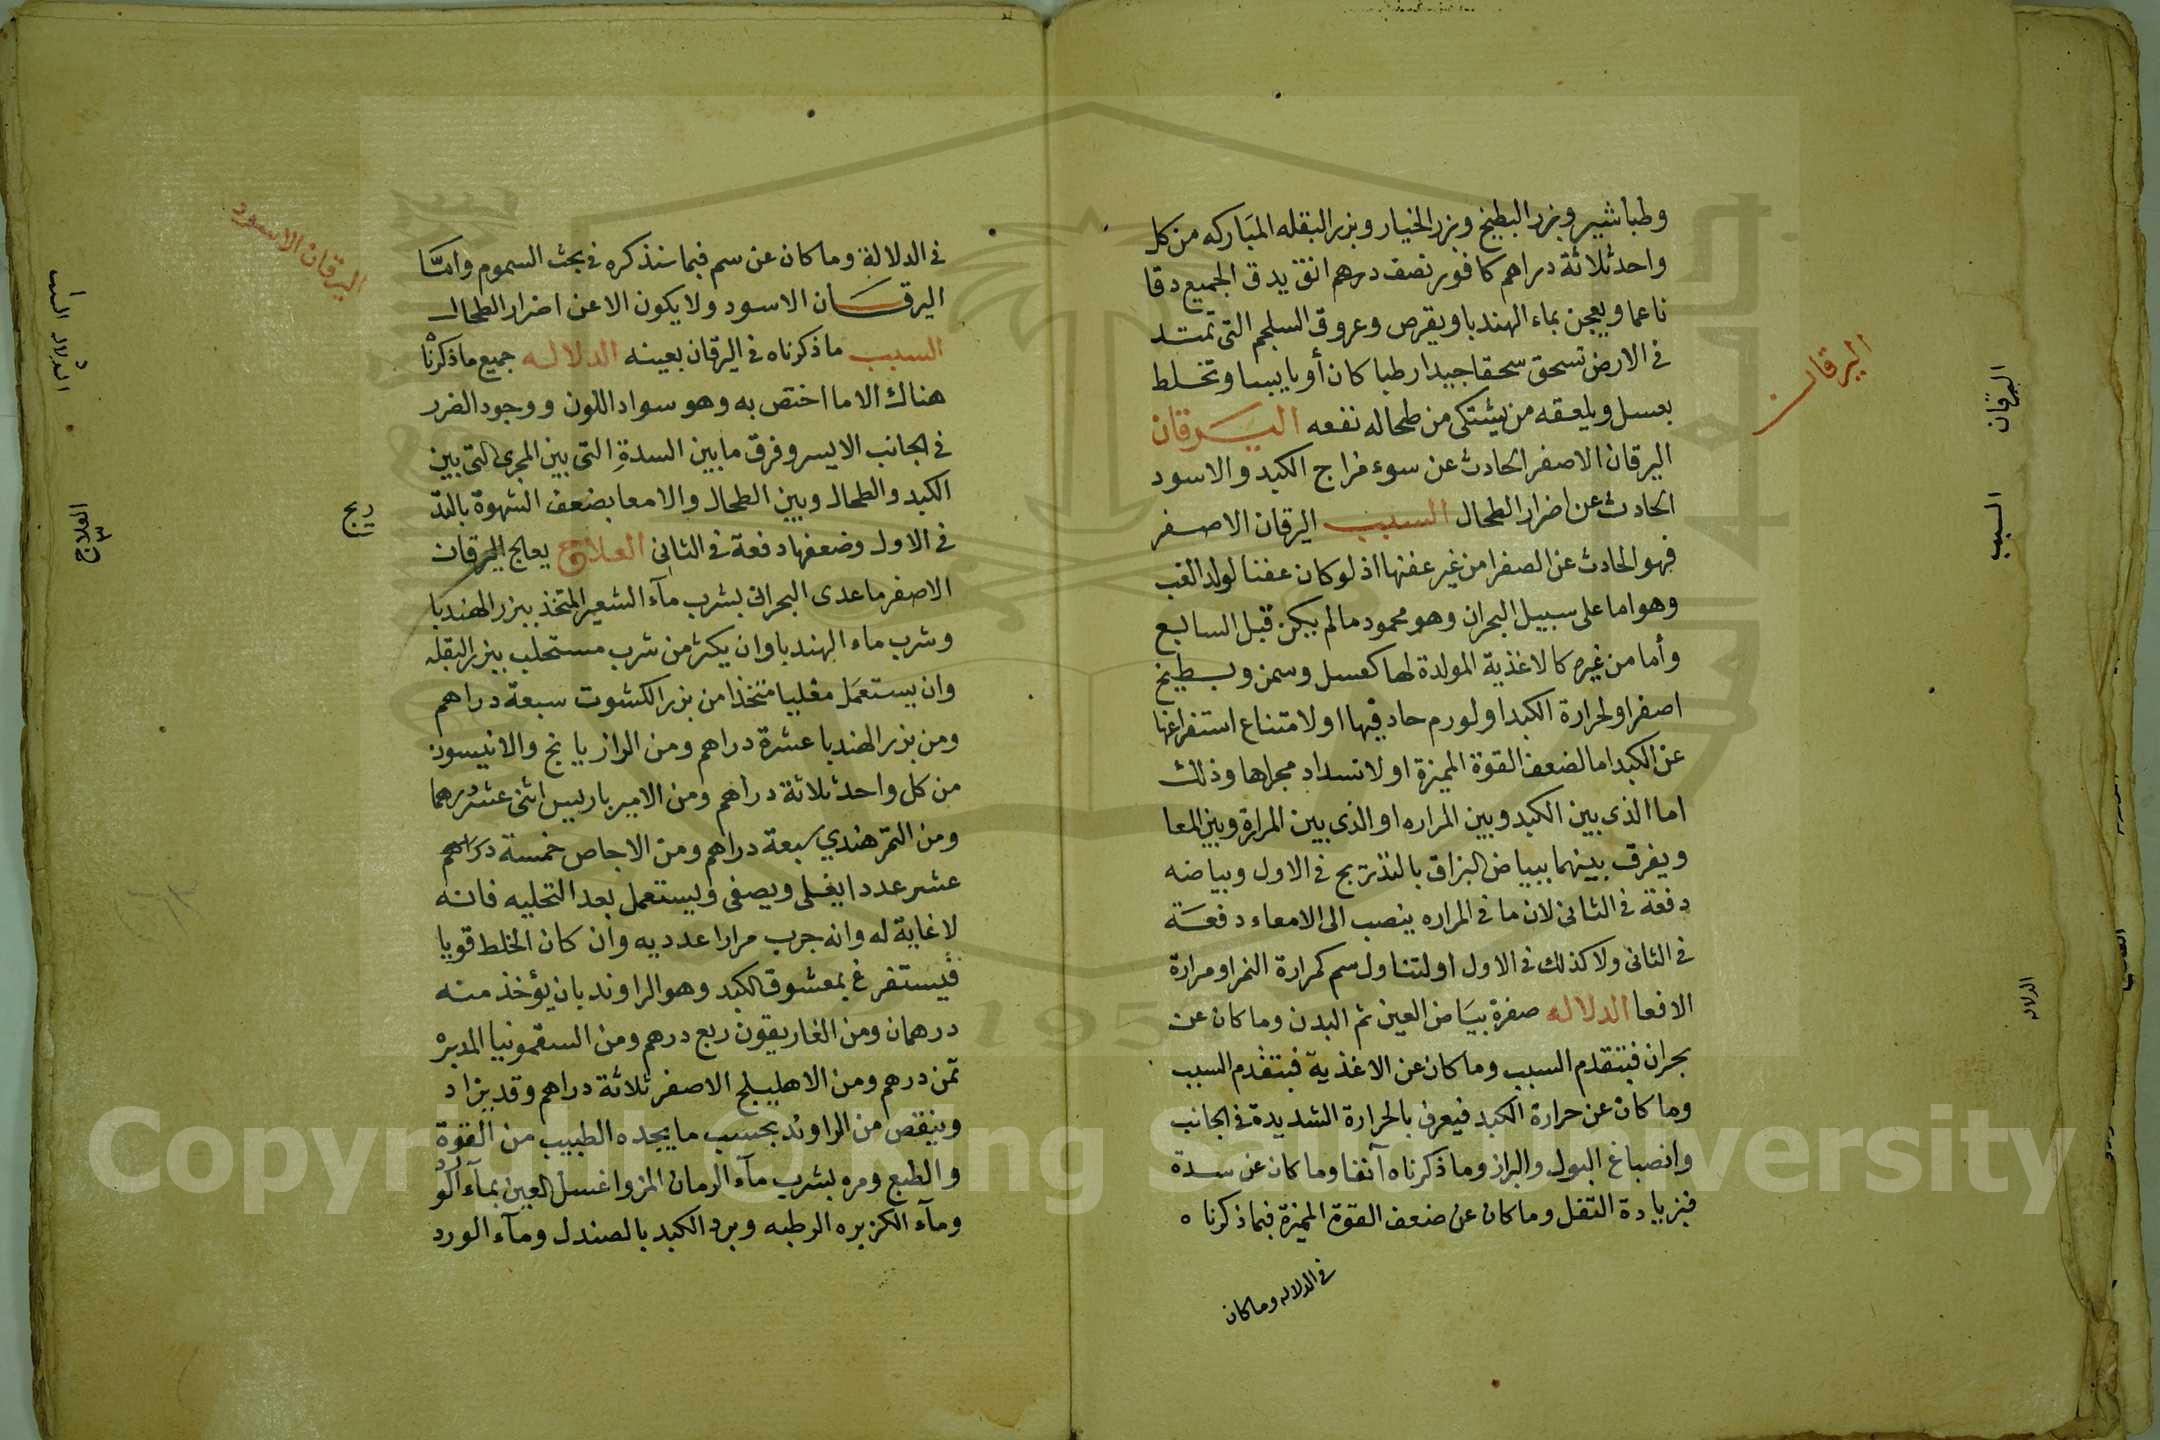 وطباشير وبزر البطيخ وبزر الخيار وبزر البقله المباركه من كل
واحد ثلاثة دراهم كافور نصف درهم انق يدق الجميع دقا
ناعما ويعجن بماء الهندبا ويقرص وعروق السلجم التى تمتد
فى الارض تسحق سحقا جيدا رطبا كان أو يابسا وتخلط
بعسل ويلعقه من يشتكى من طحاله نفعه اليرقان
اليرقان الاصفر الحادث عن سوء مزاج الكبد والاسود
الحادث عن اضرار الطحال السبب اليرقان الاصفر
فهو الحادث عن الصفرا من غير عفنها اذ لو كان عفنا لولد الغب
وهو اما على سبيل البحران وهو محمود مالم يكن قبل السابع
وأما من غيره كالاغذية المولدة لها كعسل وسمن وبطيخ
اصفر او لحرارة الكبد او لورم حاد فيها او لامتناع استفراغها
عن الكبد اما لضعف القوة المميزة او لانسداد مجراها وذلك
اما الذى بين الكبد وبين المراره او الذى بين المرارة وبين المعا
ويفرق بينهما ببياض البزاق بالتدريج فى الاول وبياضه
دفعة فى الثانى لان ما فى المراره ينصب الى الامعاء دفعة
فى الثانى ولا كذلك فى الاول او لتناول سم كمرارة النمر او مرارة
الافعا الدلاله صفرة بياض العين ثم البدن وما كان عن
بحران فبتقدم السبب وما كان عن الاغذية فبتقدم السبب
وما كان عن حرارة الكبد فيعرف بالحرارة الشديدة فى الجانب
وانصباغ البول والبراز وما ذكرناه آنفا وما كان عن سدة
فبزيادة الثقل وما كان عن ضعف القوة المميزة فبما ذكرناه
فى الدلاله وما كان
اليرقان
اليرقان
السبب
الدلاله
فى الدلالة وما كان عن سم فبما سنذكره فى بحث السموم وامّا
اليرقان الاسود ولا يكون الا عن اضرار الطحال
السبب ما ذكرناه فى اليرقان بعينه الدلاله جميع ما ذكرناه
هناك الا ما اختص به وهو سواد اللون ووجود الضرر
فى الجانب الايسر وفرق ما بين السدة التى بين المجرى التى بين
الكبد والطحال وبين الطحال والامعا بضعف الشهوة بالتد
ريج
فى الاول وضعفها دفعة فى الثانى العلاج يعالج اليرقان
الاصفر ماعدى البحرانى بشرب مآء الشعير المتخذ ببزر الهندبا
وشرب ماء الهندبا وان يكثر من شرب مستحلب ببزر البقله
وان يستعمل مغليا متخذا من بزر الكشوت سبعة دراهم
ومن بزر الهندبا عشرة دراهم ومن الرازيانج والانيسون
من كل واحد ثلاثة دراهم ومن الامير باريس اثنى عشر درهما
ومن التمر هندي سبعة دراهم ومن الاجاص خمسة دراهم
عشر عددا يغلى ويصفى ويستعمل بعد التحليه فانه
لا غاية له وانه جرب مرارا عديه وان كان الخلط قويا
فيستفرغ بمعشوق الكبد وهو الراوند بان يؤخذ منه
درهمان ومن الغاريقون ربع درهم ومن السقمونيا المدبره
ثمن درهم ومن الاهليلج الاصفر ثلاثة دراهم وقد يزاد
وينقص من الراوند بحسب ما يجده الطبيب من القوة
والطبع ومره بشرب مآء الرمان المز واغسل العين بمآء الو
ومآء الكزبره الرطبه وبرد الكبد بالصندل ومآء الورد
اليرقان الاسود
السبب
الدلاله
العلاج
Copyright © King Saud University
195